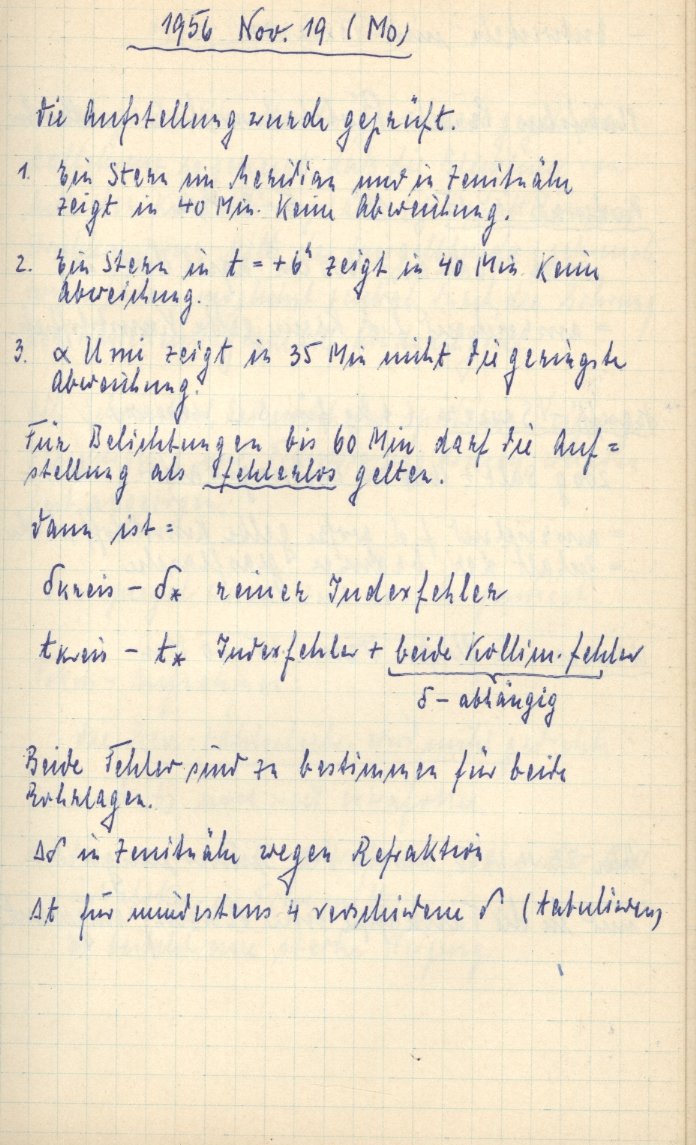 1956 Nov. 19 (Mo)
Die Aufstellung wurde geprüft.
1. Ein Stern im Meridian und in Zenitnähe
zeigt in 40 Min. keine Abweichung.
2. Ein Stern in t = +6ʰ zeigt in 40 Min. keine
Abweichung.
3. α Umi zeigt in 35 Min nicht die geringste
Abweichung.
Für Belichtungen bis 60 Min darf die Auf=
stellung als fehlerlos gelten.
Dann ist:
δKreis – δ* reiner Indexfehler
tKreis – t* Indexfehler + beide Kollim.fehler
δ-abhängig
Beide Fehler sind zu bestimmen für beide
Rohrlagen.
Δδ in Zenitnähe wegen Refraktion
Δt für mindestens 4 verschiedene δ (tabulieren)